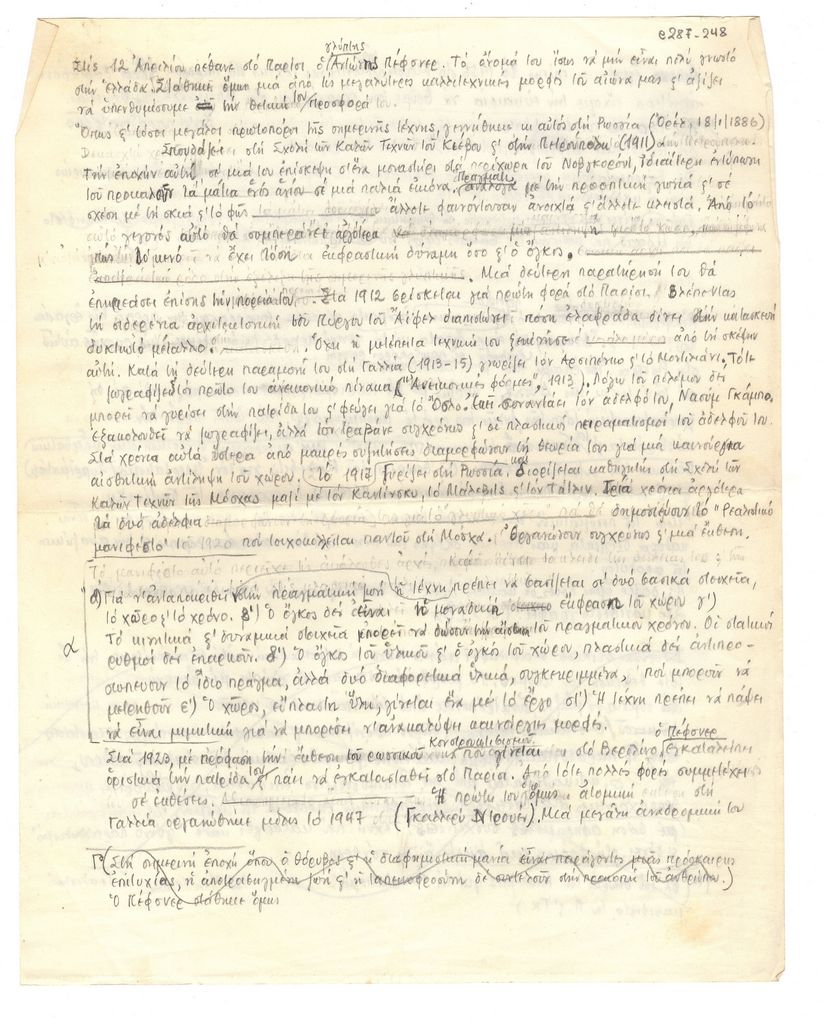 e287-248
γλύπτης
Στίς 12 Ἀπριλίου πέθανε στό Παρίσι ὁ Ἀντώνης Πέφσνερ. Τό ὄνομά του ἴσως νά μήν εἶναι πολύ γνωστό
στήν Ἑλλάδα. Στάθηκε ὅμως μιά ἀπό τίς μεγαλύτερες καλλιτεχνικές μορφές τοῦ αἰώνα μας κι ἀξίζει
νά ὑπενθυμίσουμε τήν θετική του προσφορά του.
Ὅπως κι τόσοι μεγάλοι πρωτοπόροι τῆς σημερινῆς τέχνης, γεννήθηκε κι αὐτός στή Ρωσσία (Ὀρέλ, 18/1/1886)
Σπουδάζει στή Σχολή τῶν Καλῶν Τεχνῶν τοῦ Κιέβου κι στήν Πετρούπολη (1911)
Τήν ἐποχήν αὐτή σέ μιά του ἐπίσκεψη σ' ἕνα μοναστήρι στά περίχωρα τοῦ Νοβγκορόντ, ἰδιαίτερη ἐντύπωση
Πράγματι
τοῦ προκαλοῦν τά μάτια ἑνός ἁγίου σέ μιά παλιά εἰκόνα. ἀνάλογα μέ τήν προοπτική γωνιά κι σέ
σχέση μέ τή σκιά κι τό φῶς ἄλλοτε φαινόντουσαν ἀνοιχτά κι ἄλλοτε κλειστά. Ἀπό τό
γεγονός αὐτό θά συμπεράνει ἀργότερα
πώς τό κενό ἔχει τόση ἐκφραστική δύναμη ὅσο κι ὁ ὄγκος.
Μιά δεύτερη παρατήρησή του θά
ἐπηρεάσει ἐπίσης τήν πορεία του. Στά 1912 βρίσκεται γιά πρώτη φορά στό Παρίσι. Βλέποντας
τή σιδερένια ἀρχιτεκτονική τοῦ Πύργου τοῦ Ἄιφελ διαπιστώνει πόση ἐλαφράδα δίνει στήν κατασκευή
δυκτιωτό μέταλλο. Ὅλη ἡ μετέπειτα τεχνική του ξεκίνησε ἀπό τή σκέψην
αὐτή. Κατά τή δεύτερη παραμονή του στή Γαλλία (1913-15) γνωρίζει τόν Ἀρσιπένκο κι τό Μοντιλιάνι. Τότε
ζωγραφίζει τόν πρῶτο του ἀνεικονικό πίνακα ("Ἀνεικονικές φόρμες", 1913). Λόγω τοῦ πολέμου δέν
μπορεῖ νά γυρίσει στήν πατρίδα του κι φεύγει γιά τό Ὄσλο. Ἐκεῖ συναντάει τόν ἀδελφό του, Ναούμ Γκάμπο.
Ἐξακολουθεῖ νά ζωγραφίζει, ἀλλά τόν τραβᾶνε συγχρόνως κι οἱ πλαστικοί πειραματισμοί τοῦ ἀδελφοῦ του.
Στά χρόνια αὐτά ὕστερα ἀπό μακρές συζητήσεις διαμορφώνουν τή θεωρία τους γιά μιά καινούργια
αἰσθητική ἀντίληψη τοῦ χώρου. Τό 1917 γυρίζει στή Ρωσσία, καί διορίζεται καθηγητής στή Σχολή τῶν
Καλῶν Τεχνῶν τῆς Μόσχας μαζί μέ τόν Καντίνσκυ, τό Μάλεβιτς κι τόν Τάτλιν. Τρία χρόνια ἀργότερα
τά δυό ἀδέλφια δημοσιεύουν τό "Ρεαλιστικό
μανιφέστο" τοῦ 1920 πού τοιχοκολλεῖται παντοῦ στή Μόσχα. Ὀργανώνουν συγχρόνως κι μιά ἔκθεση.
Τό μανιφέστο αὐτό περιέχει τίς ἀκόλουθες ἀρχές,
α
α) Γιά ν' ἀνταποκριθεῖ στήν πραγματική ζωή ἡ τέχνη πρέπει νά βασίζεται σέ δυό βασικά στοιχεῖα,
τό χῶρο κι τό χρόνο. β') Ὁ ὄγκος δέν εἶναι ἡ μοναδική ἔκφραση τοῦ χώρου γ')
Τά κινητικά κι δυναμικά στοιχεῖα μπορεῖ νά δώσουν τήν αἴσθηση τοῦ πραγματικοῦ χρόνου. Οἱ στατικοί
ρυθμοί δέν ἐπαρκοῦν. δ') Ὁ ὄγκος τοῦ ὑλικοῦ κι ὁ ὄγκος τοῦ χώρου, πλαστικά δέν ἀντιπρο-
σωπεύουν τό ἴδιο πράγμα, ἀλλά δυό διαφορετικά ὑλικά, συγκεκριμμένα, πού μποροῦν νά
μετρηθοῦν ε') Ὁ χῶρος, εὔπλαστη ὕλη, γίνεται ἕνα μέ τό ἔργο στ') Ἡ τέχνη πρέπει νά πάψει
νά εἶναι μιμητική γιά νά μπορέσει ν' ἀνακαλύψει καινούργιες μορφές.
Κονστρουκτιβισμοῦ
ὁ Πέφσνερ
Στά 1923, μέ πρόφαση τήν ἔκθεση τοῦ ρωσσικοῦ πού γίνεται στό Βερολίνο, ἐγκαταλείπει
ὁριστικά τήν πατρίδα του κι πάει νά ἐγκατασταθεῖ στό Παρίσι. Ἀπό τότε πολλές φορές συμμετέχει
σέ ἐκθέσεις. Ἡ πρώτη του ὅμως ἀτομική στή
Γαλλία ὀργανώθηκε μόλις τό 1947 (Γκαλλερί Ντρουέν). Μιά μεγάλη ἀναδρομική του
Γ (Στή σημερινή ἐποχή ὅπου ὁ θόρυβος κι ἡ διαφημιστική μανία εἶναι παράγοντες μιᾶς πρόσκαιρης
ἐπιτυχίας, ἡ ἀποτραβηγμένη ζωή κι ἡ ταπεινοφροσύνη δέ συντελοῦν στήν προκοπή τοῦ ἀνθρώπου.)
Ὁ Πέφσνερ στάθηκε ὅμως